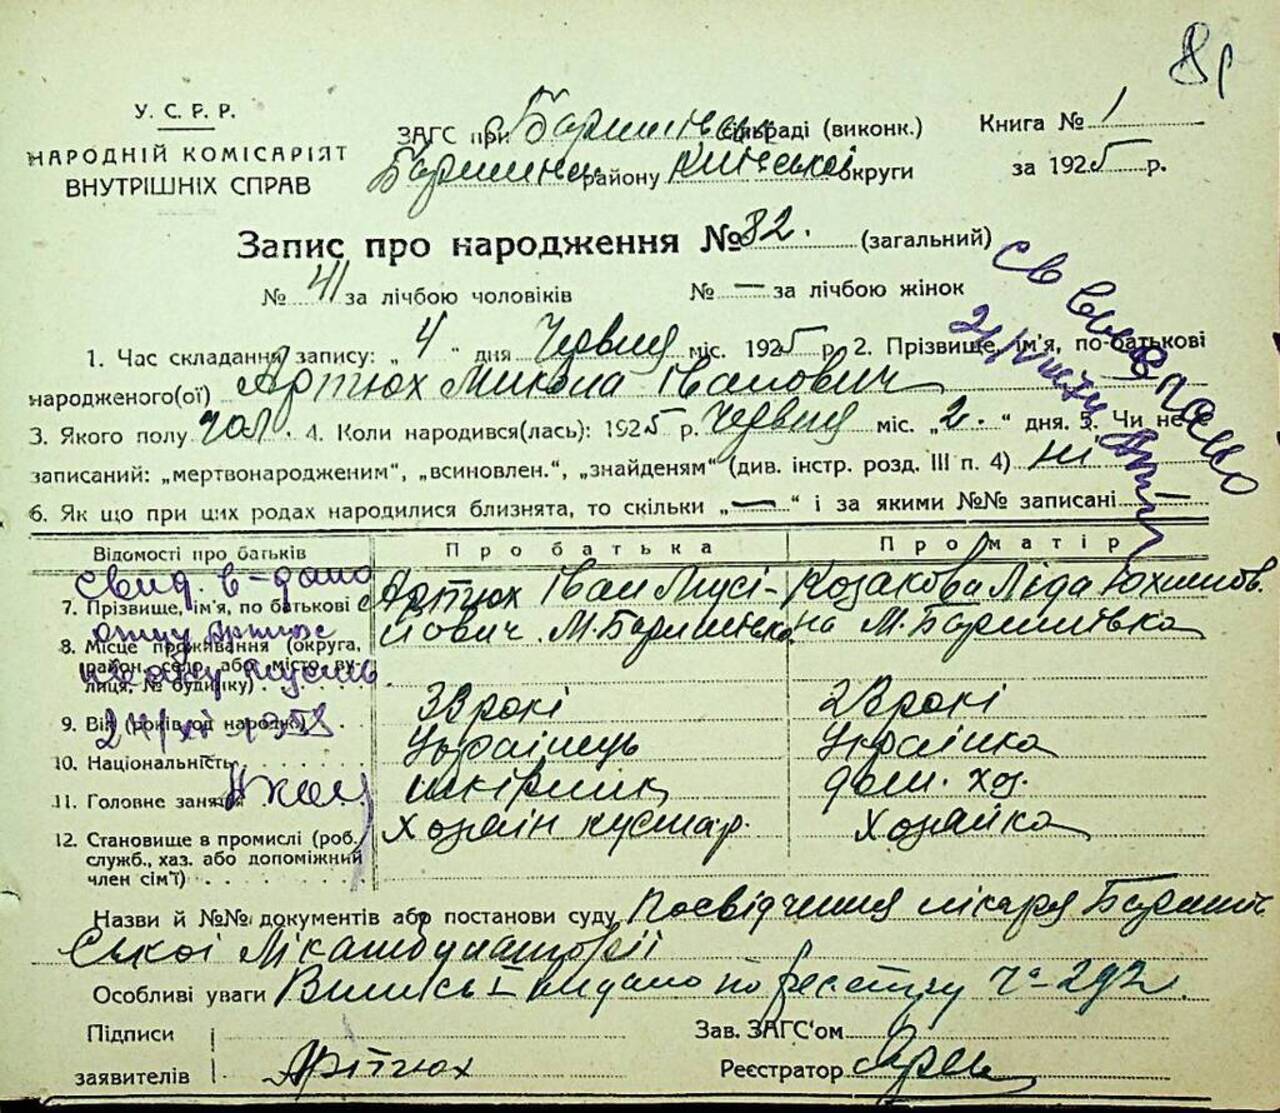 У. С. Р. Р.
НАРОДНІЙ КОМІСАРІЯТ
ВНУТРІШНІХ СПРАВ
ЗАГС при Баришівськ сільраді (виконк.)
Баришивс. району Київської округи
Книга № 1
за 1925 р.
Запис про народження № 82. (загальний)
№ 41 за лічбою чоловіків № — за лічбою жінок
1. Час складання запису: „ 4 “ дня Червня міс. 1925 р. 2. Прізвище, ім'я, по-батькові
народженого(ої) Артюх Микола Іванович
3. Якого полу чол. 4. Коли народився(лась): 1925 р. Червня міс. „ 2. “ дня. 5. Чи не
записаний: „мертвонародженим“, „всиновлен.“, „знайденям“ (див. інстр. розд. III п. 4) ні
6. Як що при цих родах народилися близнята, то скільки „ — “ і за якими №№ записані —
Відомості про батьків Про батька Про матір
7. Прізвище, ім'я, по батькові Артюх Іван Мусі- Козакова Ліда Юхимов.
йович. М. Баришівка на М. Баришівка
8. Місце проживання (округа, район, село або місто, вулиця, № будинку)
9. Вік (років од народж.) 33 рокі 23 рокі
10. Національність Українець Українка
11. Головне заняття шкірник дом. хоз.
12. Становище в промислі (роб., служб., хаз. або допоміжний член сім'ї) Хозяін кустар. Хозяйка
Назви й №№ документів або постанови суду Посвідчення лікаря Баришів-
ської
Особливі уваги Випись видано по реєстру № 292.
Підписи
заявителів Артюх
Зав. ЗАГС'ом
Реєстратор